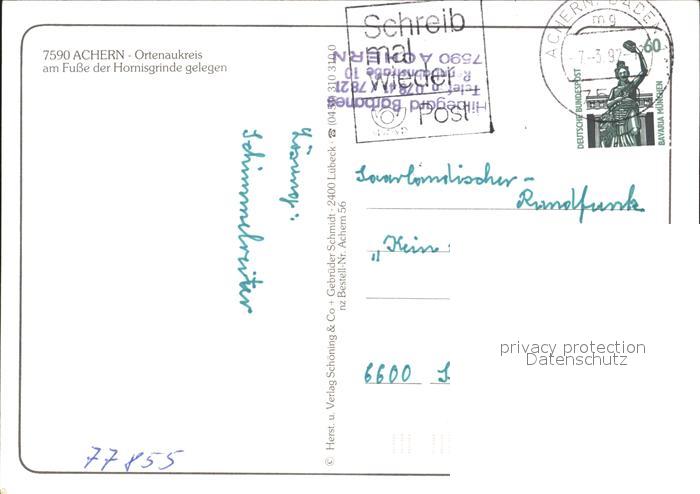 7590 ACHERN · Ortenaukreis
am Fuße der Hornisgrinde gelegen
Schreib
mal
wieder
Post
ACHERN, BADEN
mg
-7.-3.92-
60
DEUTSCHE BUNDESPOST
BAVARIA MÜNCHEN
Hildegard
7590 ACHERN
Lösung:
Schimmelreiter
© Herst. u. Verlag Schöning & Co + Gebrüder Schmidt · 2400 Lübeck ·
nz Bestell-Nr. Achern 56
Saarländischer-
Rundfunk
„Kein
6600 S
privacy protection
Datenschutz
77855